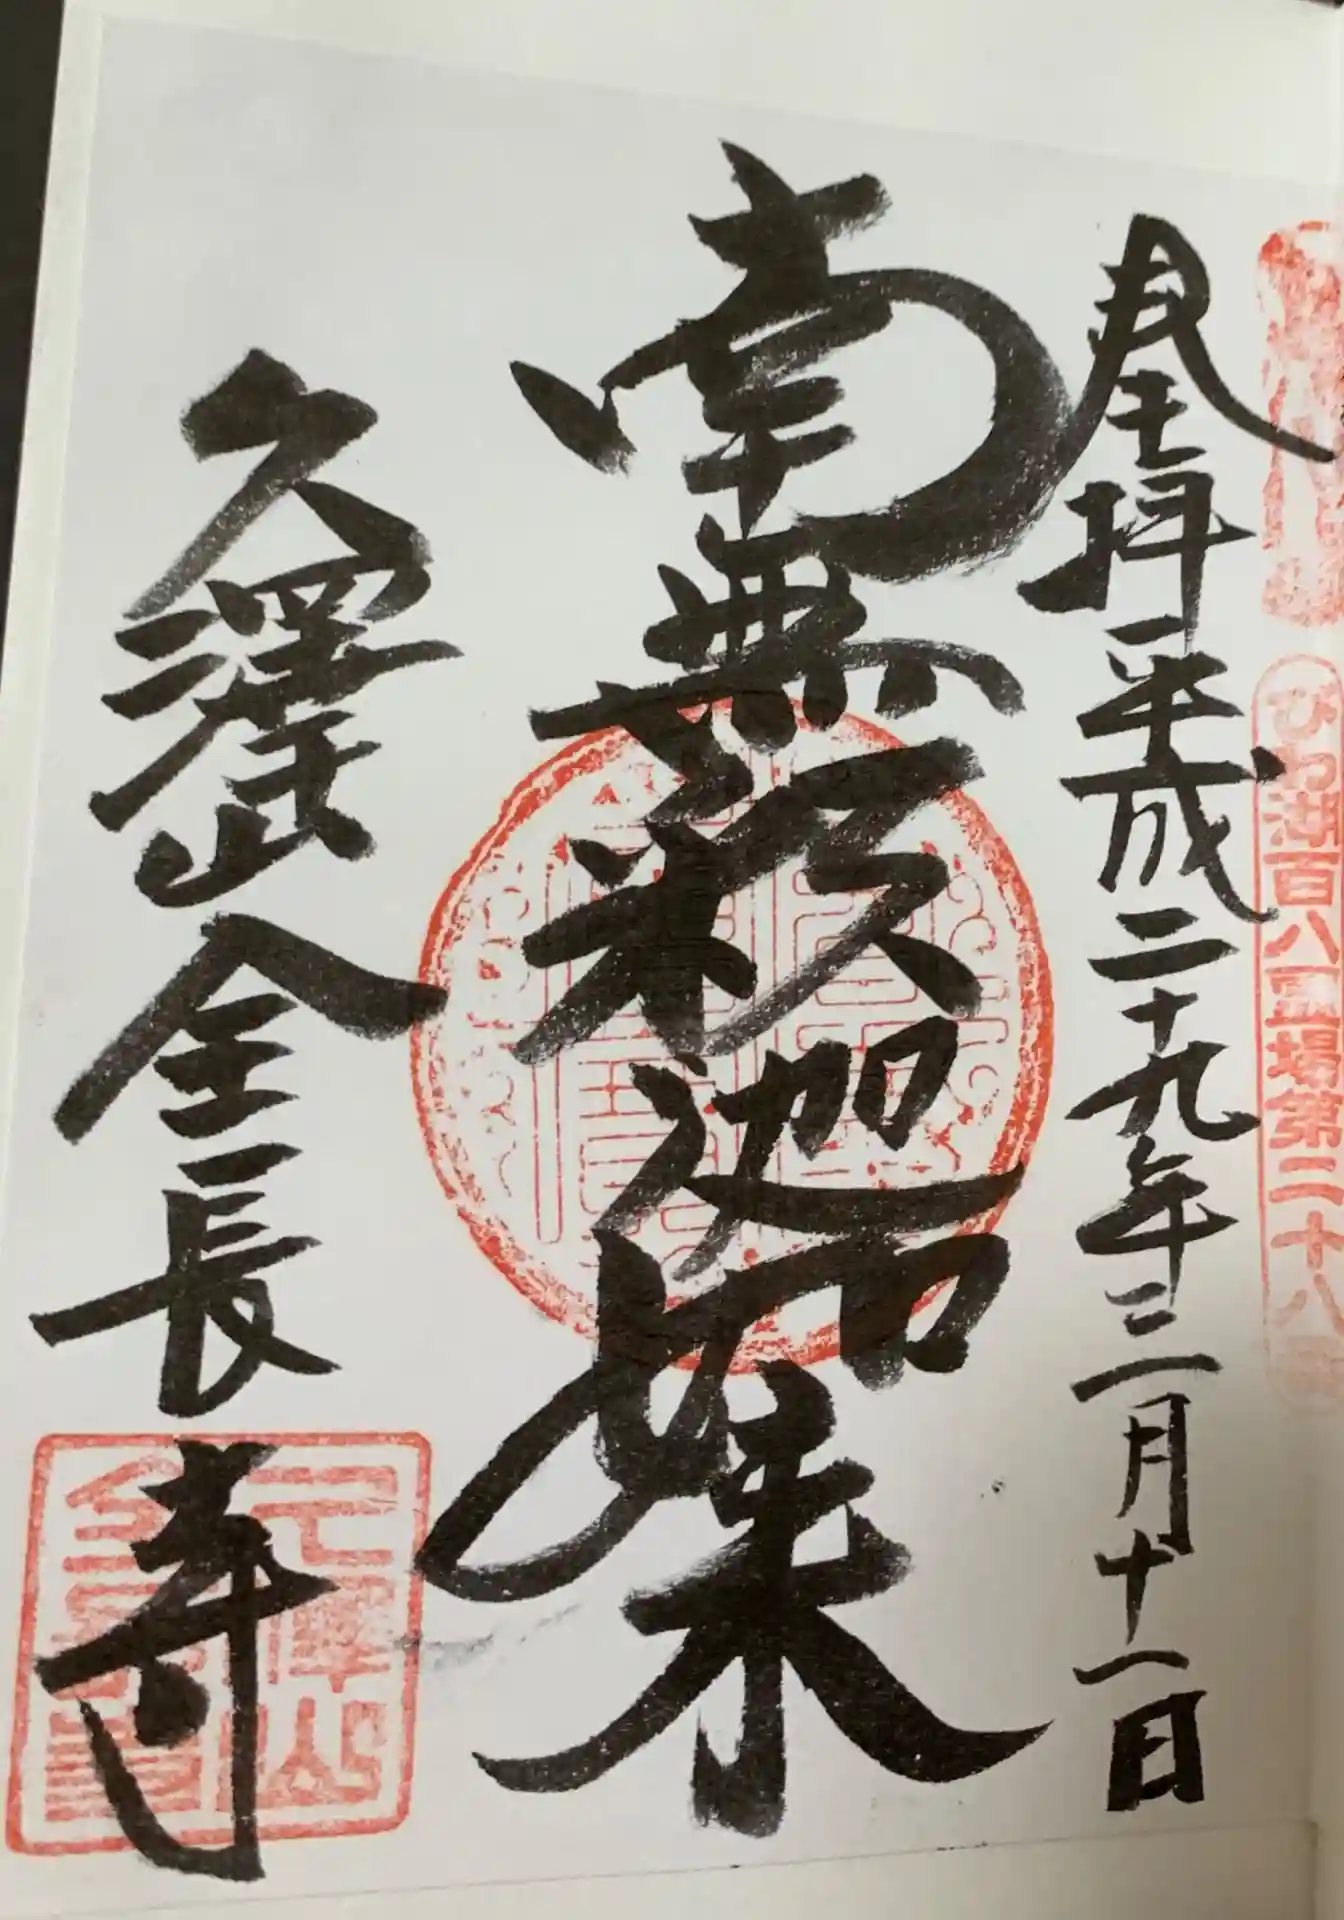 びわ湖百八霊場第二十八番
奉拝平成二十九年三月十一日
南無釈迦如来
久澤山全長寺